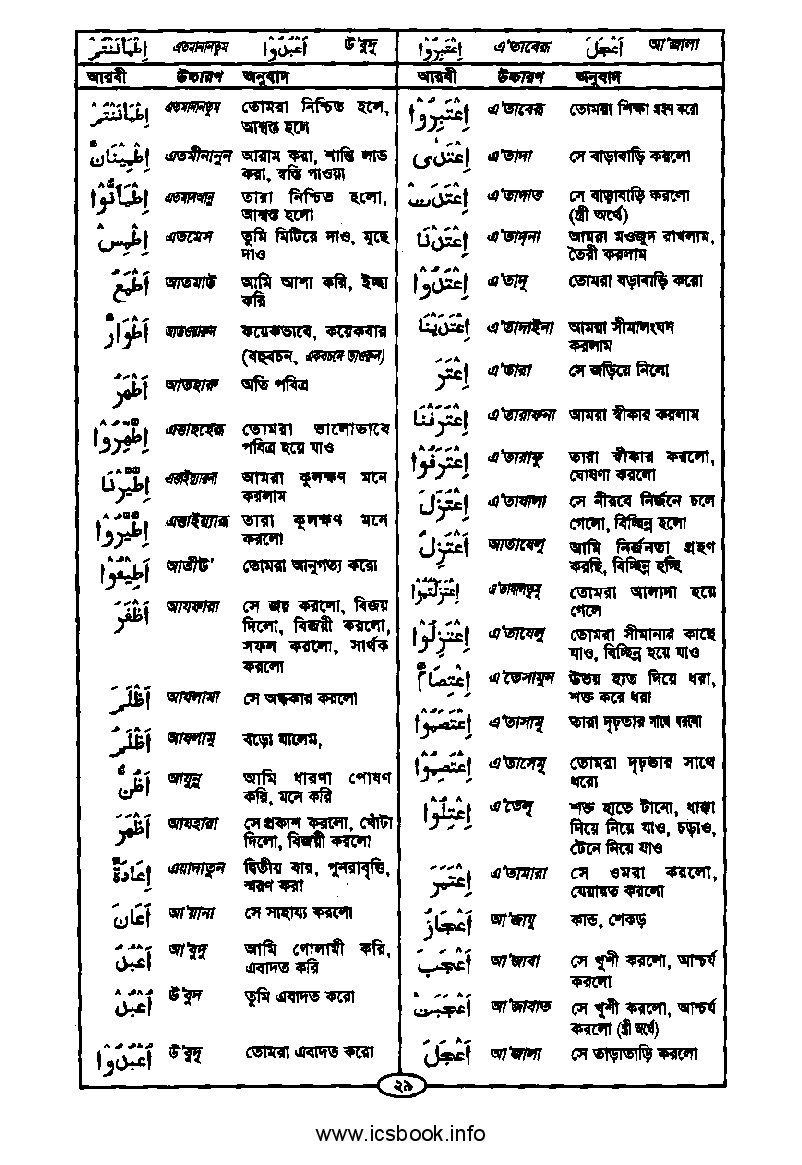 اِطْمَاْنَنْتُمْ এতমানানতুম اُعْبُدُوْا উ'বুদূ
اِعْتَبِرُوْا এ'তাবেরূ اَعْجَلَ আ'জালা
আরবী উচ্চারণ অনুবাদ
اِطْمَاْنَنْتُمْ এতমানানতুম তোমরা নিশ্চিত হলে,
আশ্বস্ত হলে
اِطْمِيْنَانٌ এতমীনানুন আরাম করা, শান্তি লাভ
করা, স্বস্তি পাওয়া
اِطْمَاَنُّوْا এতমাআন্নু তারা নিশ্চিত হলো,
আশ্বস্ত হলো
اِطْمِسْ এতমেস তুমি মিটিয়ে দাও, মুছে
দাও
اَطْمَعُ আতমাউ আমি আশা করি, ইচ্ছা
করি
اَطْوَارٌ আতওয়ারুন কয়েকভাবে, কয়েকবার
(বহুবচন, একবচনে তাওরুন)
اَطْهَرُ আতহারু অতি পবিত্র
اِطَّهَّرُوْا এত্তাহহেরূ তোমরা ভালোভাবে
পবিত্র হয়ে যাও
اِطَّيَّرْنَا এত্তাইয়্যারনা আমরা কুলক্ষণ মনে
করলাম
اِطَّيَّرُوْا এত্তাইয়্যারূ তারা কুলক্ষণ মনে
করলো
اَطِيْعُوْا আতীউ' তোমরা আনুগত্য করো
اَظْفَرَ আযফারা সে জয় করলো, বিজয়
দিলো, বিজয়ী করলো,
সফল করলো, সার্থক
করলো
اَظْلَمَ আযলামা সে অন্ধকার করলো
اَظْلَمُ আযলামু বড়ো যালেম,
اَظُنُّ আযুন্নু আমি ধারণা পোষণ
করি, মনে করি
اَظْهَرَ আযহারা সে প্রকাশ করলো, খোঁটা
দিলো, বিজয়ী করলো
اِعَادَةٌ এয়াদাতুন দ্বিতীয় বার, পুনরাবৃত্তি,
স্মরণ করা
اَعَانَ আ'য়ানা সে সাহায্য করলো
اَعْبُدُ আ'বুদু আমি গোলামী করি,
এবাদত করি
اُعْبُدْ উ'বুদ তুমি এবাদত করো
اُعْبُدُوْا উ'বুদূ তোমরা এবাদত করো
আরবী উচ্চারণ অনুবাদ
اِعْتَبِرُوْا এ'তাবেরূ তোমরা শিক্ষা গ্রহণ করো
اِعْتَدٰى এ'তাদা সে বাড়াবাড়ি করলো
اِعْتَدَتْ এ'তাদাত সে বাড়াবাড়ি করলো
(স্ত্রী অর্থে)
اِعْتَدْنَا এ'তাদনা আমরা মওজুদ রাখলাম,
তৈরী করলাম
اِعْتَدُوْا এ'তাদূ তোমরা বড়াবাড়ি করো
اِعْتَدَيْنَا এ'তাদাইনা আমরা সীমালংঘন
করলাম
اِعْتَرَ এ'তারা সে জড়িয়ে নিলো
اِعْتَرَفْنَا এ'তারাফনা আমরা স্বীকার করলাম
اِعْتَرَفُوْا এ'তারাফু তারা স্বীকার করলো,
ঘোষণা করলো
اِعْتَزَلَ এ'তাযালা সে নীরবে নির্জনে চলে
গেলো, বিচ্ছিন্ন হলো
اَعْتَزِلُ আতাযেলু আমি নির্জনতা গ্রহণ
করছি, বিচ্ছিন্ন হচ্ছি
اِعْتَزَلْتُمُوْا এ'তাযালতুমূ তোমরা আলাদা হয়ে
গেলে
اِعْتَزِلُوْا এ'তাযেলু তোমরা সীমানার কাছে
যাও, বিচ্ছিন্ন হয়ে যাও
اِعْتِصَامٌ এ'তেসামুন উভয় হাত দিয়ে ধরা,
শক্ত করে ধরা
اِعْتَصَمُوْا এ'তাসামূ তারা দৃঢ়তার সাথে ধরলো
اِعْتَصِمُوْا এ'তাসেমূ তোমরা দৃঢ়তার সাথে
ধরো
اِعْتِلُوْا এ'তেলূ শক্ত হাতে টানো, ধাক্কা
দিয়ে নিয়ে যাও, চড়াও,
টেনে নিয়ে যাও
اِعْتَمَرَ এ'তামারা সে ওমরা করলো,
যেয়ারত করলো
اَعْجَازُ আ'জাযু কান্ড, শেকড়
اَعْجَبَ আ'জাবা সে খুশী করলো, আশ্চর্য
করলো
اَعْجَبَتْ আ'জাবাত সে খুশী করলো, আশ্চর্য
করলো (স্ত্রী অর্থে)
اَعْجَلَ আ'জালা সে তাড়াতাড়ি করলো
২৯
www.icsbook.info